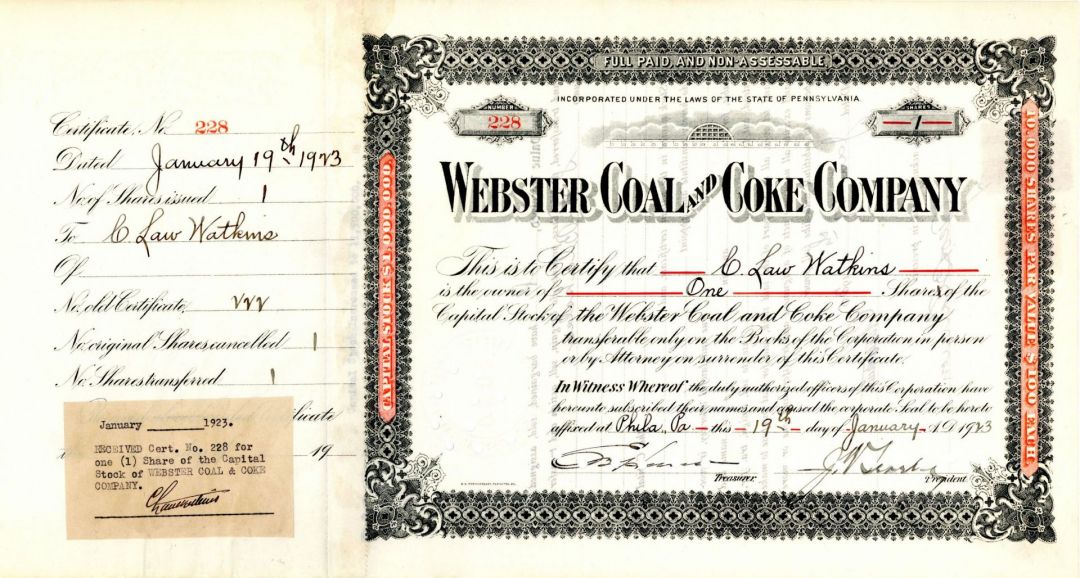 Certificate, No. 228
Dated January 19th 1923
No. of Shares issued 1
To C Law Watkins
Of
No. old Certificate,
No. original Shares cancelled 1
No. Shares transferred 1
19
January 1923.
RECEIVED Cert. No. 228 for
one (1) Share of the Capital
Stock of WEBSTER COAL & COKE
COMPANY.
FULL PAID, AND NON-ASSESSABLE
INCORPORATED UNDER THE LAWS OF THE STATE OF PENNSYLVANIA.
NUMBER
228
SHARES
1
CAPITAL STOCK $1,000,000
10,000 SHARES PAR VALUE $100 EACH.
WEBSTER COAL AND COKE COMPANY
This is to Certify that C. Law Watkins
is the owner of One Shares of the
Capital Stock of the Webster Coal and Coke Company
transferable only on the Books of the Corporation in person
or by Attorney on surrender of this Certificate.
In Witness Whereof the duly authorized officers of this Corporation have
hereunto subscribed their names and caused the corporate Seal to be hereto
affixed at Phila., Pa this 19th day of January A.D. 1923
Treasurer.
President